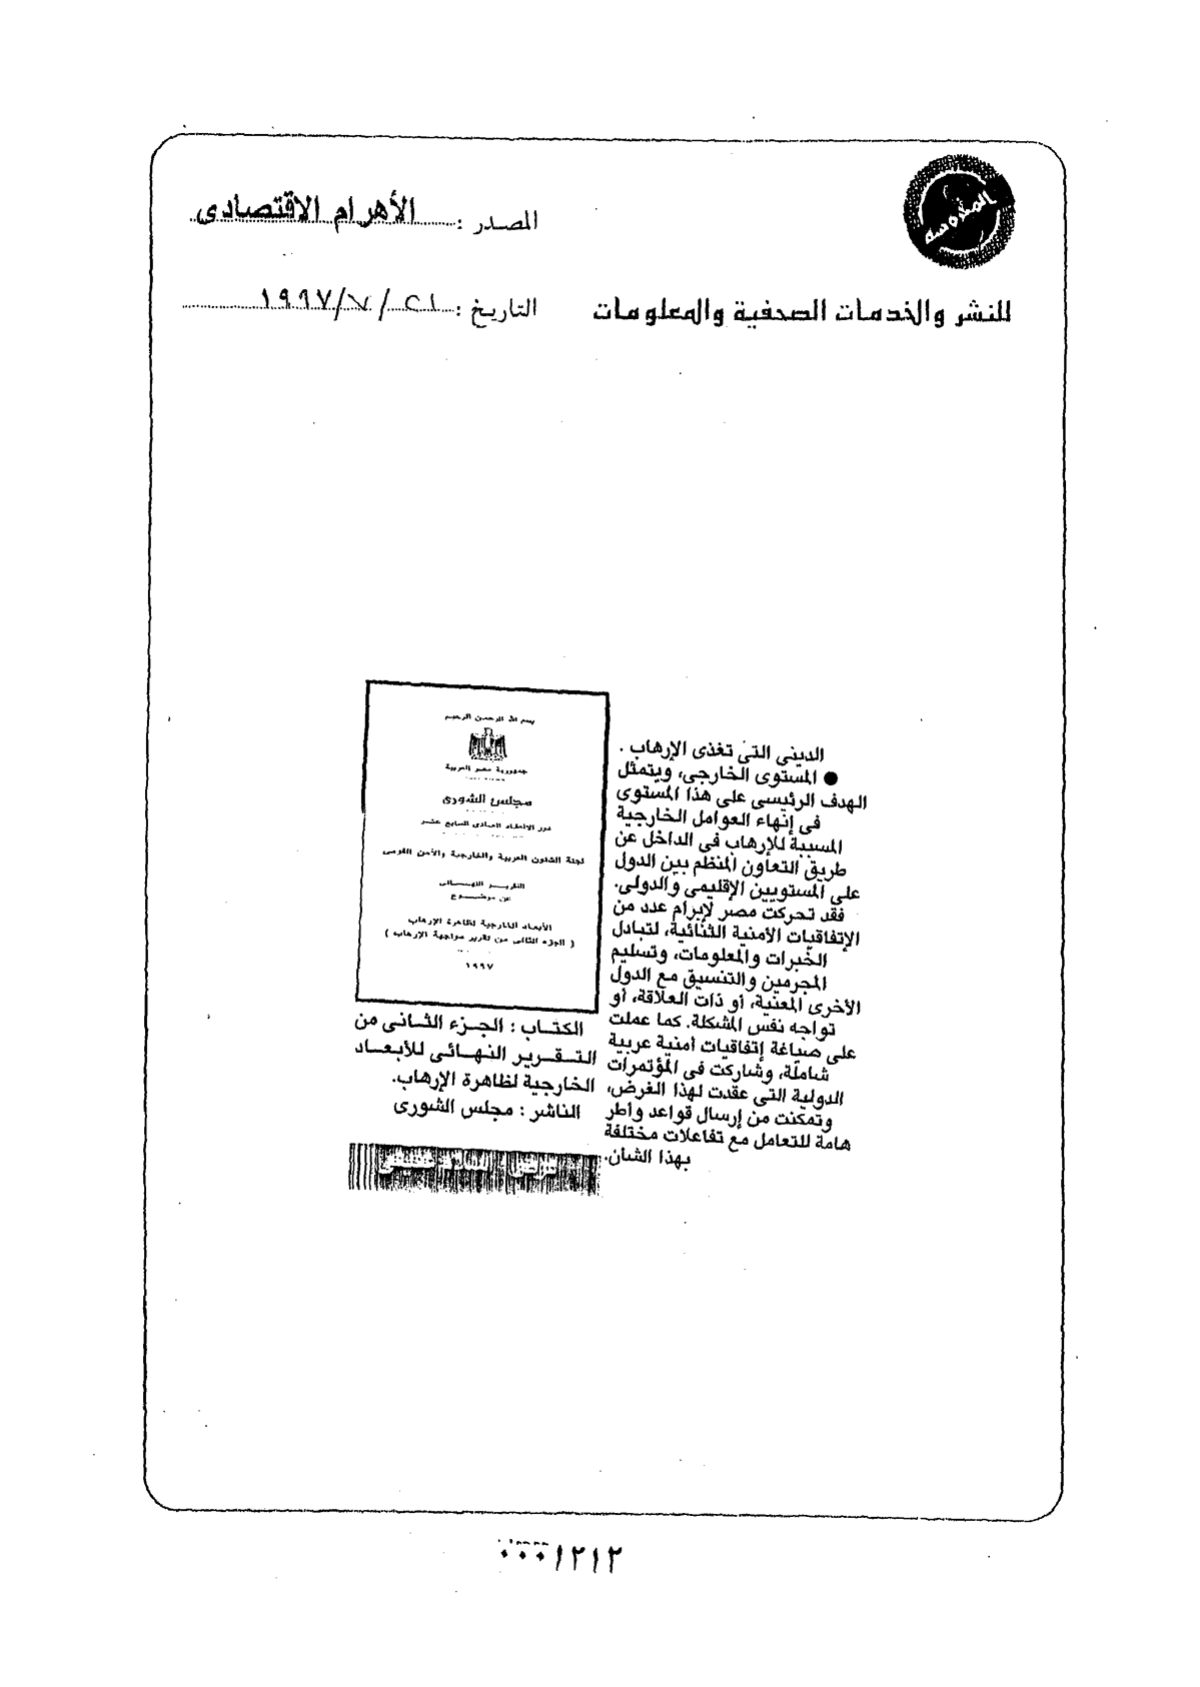 المحروسة
المصدر : الأهرام الاقتصادى
للنشر والخدمات الصحفية والمعلومات
التاريخ : ٢١ / ٧ / ١٩٩٧
الدينى التى تغذى الإرهاب .
● المستوى الخارجى، ويتمثل
الهدف الرئيسى على هذا المستوى
فى إنهاء العوامل الخارجية
المسببة للإرهاب فى الداخل عن
طريق التعاون المنظم بين الدول
على المستويين الإقليمى والدولى.
فقد تحركت مصر لإبرام عدد من
الإتفاقيات الأمنية الثنائية، لتبادل
الخبرات والمعلومات، وتسليم
المجرمين والتنسيق مع الدول
الأخرى المعنية، أو ذات العلاقة، أو
تواجه نفس المشكلة. كما عملت
على صياغة إتفاقيات أمنية عربية
شاملة، وشاركت فى المؤتمرات
الدولية التى عقدت لهذا الغرض،
وتمكنت من إرسال قواعد وأطر
هامة للتعامل مع تفاعلات مختلفة
بهذا الشان.
بسم الله الرحمن الرحيم
جمهورية مصر العربية
مجلس الشورى
دور الانعقاد العادى السابع عشر
لجنة الشئون العربية والخارجية والأمن القومى
التقريـر النهـائى
عن موضـوع
الأبعاد الخارجية لظاهرة الإرهاب
( الجزء الثانى من تقرير مواجهة الإرهاب )
١٩٩٧
الكتـاب : الجـزء الثـانى من
التـقـرير النهـائى للأبعـاد
الخارجية لظاهرة الإرهاب.
الناشر : مجلس الشورى
٠٠٠١٢١٢